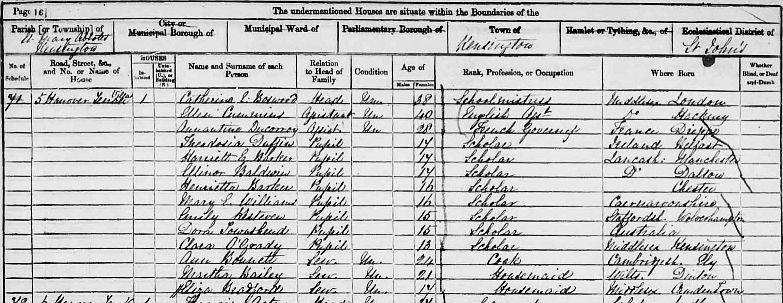 Page 16] The undermentioned Houses are situate within the Boundaries of the
Parish [or Township] of City or Municipal Borough of Municipal Ward of Parliamentary Borough of Town of Hamlet or Tything, &c., of Ecclesiastical District of
St Mary Abbotts Kensington Kensington St John's
No. of Schedule Road, Street, &c., and No. or Name of House HOUSES Inhabited Uninhabited (U.), or Building (B.) Name and Surname of each Person Relation to Head of Family Condition Age of Males Females Rank, Profession, or Occupation Where Born Whether Blind, or Deaf-and-Dumb
74 5 Hanover Villas 1 Catherine Boswood Head Un 38 Schoolmistress Middlesex London
Ellen Cummins Assistant Un 40 English Do Hackney
Augustine Assist Un 28 French Governess France Dieppe
Theodosia Duffin Pupil 17 Scholar Ireland Belfast
Harriett G Barker Pupil 17 Scholar Lancash: Manchester
Ellinor Baldwin Pupil 17 Scholar Do Dalton
Henrietta Barker Pupil 16 Scholar Chester
Mary L Williams Pupil 16 Scholar Caernarvonshire
Emily Pupil 15 Scholar Staffords. Wolverhampton
Dora Townshend Pupil 15 Scholar Australia
Clara O'Grady Pupil 13 Scholar Middlesex Kensington
Ann Bonnett Serv Un 24 Cook Cambridgesh. Ely
Martha Bailey Serv Un 21 Housemaid Wilts Dinton
Eliza Bradford Serv Un 17 Housemaid Middlesex Camden Town